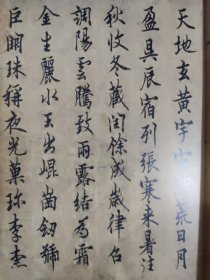 天地玄黃宇宙洪荒日月
盈昃辰宿列張寒来暑往
秋收冬藏閏餘成歲律呂
調陽雲騰致雨露結為霜
金生麗水玉出崐崗劒號
巨闕珠稱夜光菓珍李柰